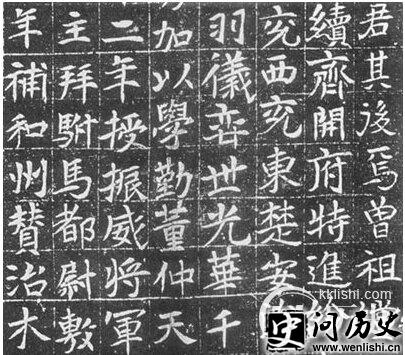 君其後焉曾祖
續齊開府特進
兗西兗東楚安
羽儀弈世光華千
加以學勤董仲天
二年授振威將軍
主拜駙馬都尉敷
年補和州贊治木
kklishi.com
史问历史
www.wenlishi.cn